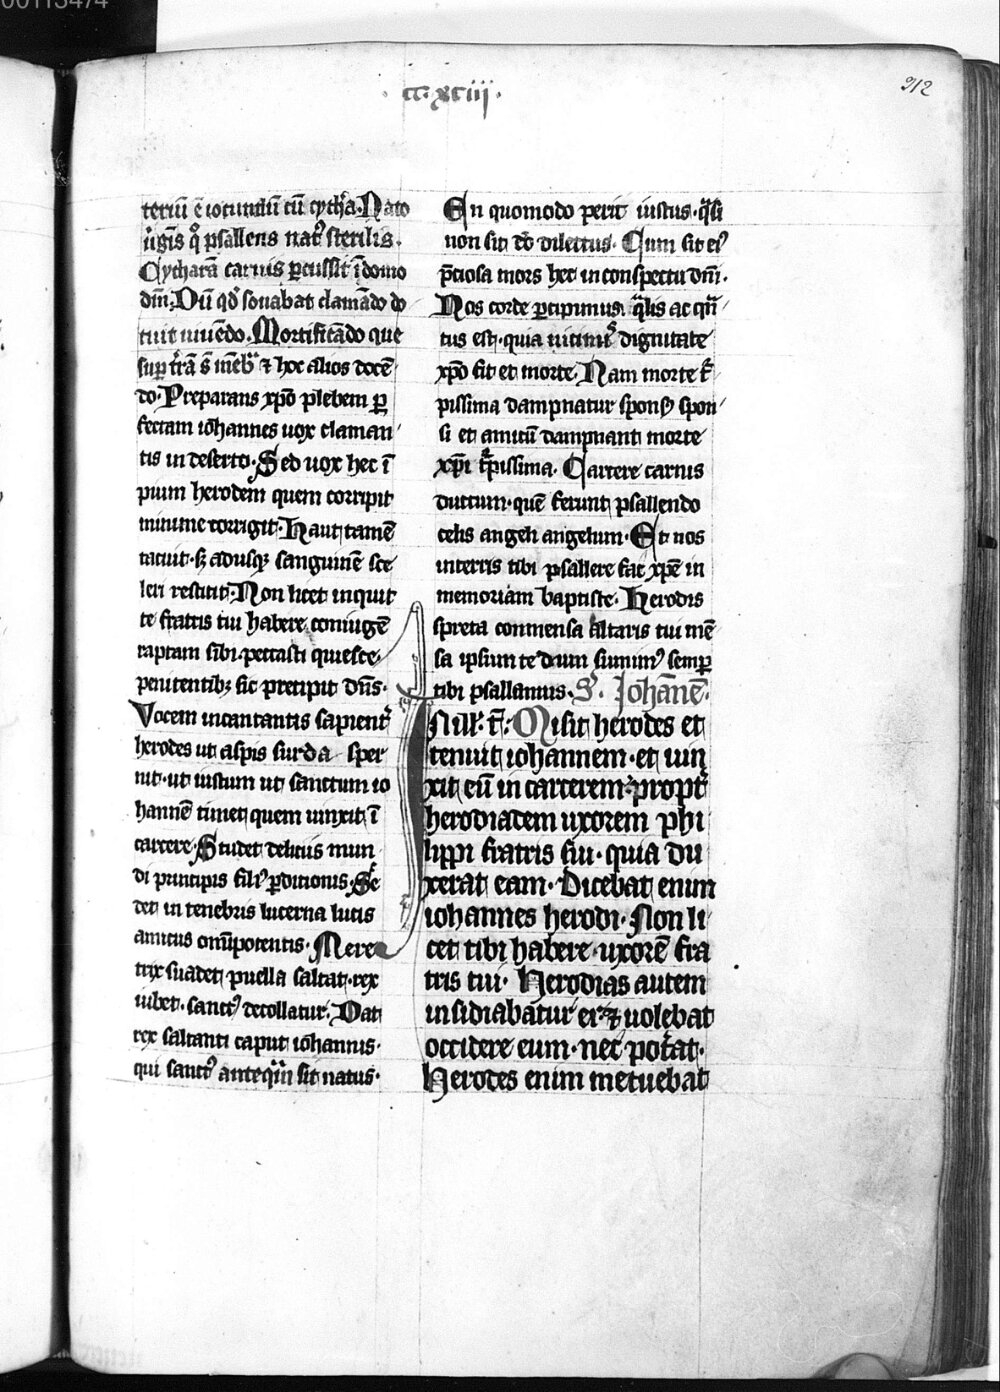 00113474
·cc·xciii·
212
teriū ē iocundū cū cythᵃa. Nato
psallens natꝰ sterilis.
Cytharā carnis ꝑcussit ī domo
dm̄. Dū qd̓ sonabat clamādo do
cuit viuēdo. Mortificādo que
suꝑ t̓rā s̄ mēbᵃ ⁊ hoc alios docē
do. Preparans xp̄o plebem ꝑ
fectam iohannes uox claman
tis in deserto. Sed uox hec ī
pium herodem quem corripit
minime corrigit. Haut tamē
tacuit. sꝫ adusqꝫ sanguinē sce
leri restitit. Non licet inquit
te fratris tui habere coniugē
raptam sibi. peccasti quiesce.
penitentibꝫ sic precipit dn̄s.
Vocem incantantis sapientᷣ
herodes ut aspis surda sper
nit. ut iustum ut sanctum io
hannē timet quem vinxit ī
carcere. Studet deliciis mun
di principis filiꝰ ꝑditionis. Se
det in tenebris lucerna lucis
amicus omīpotentis. Mere
trix suadet puella saltat. rex
iubet. sanctꝰ decollatur. Dat
rex saltanti caput iohannis.
qui sanctꝰ anteqᵃm sit natus.
En quomodo perit iustus. qᵃsi
non sit dō dilectus. Cum sit eiꝰ
p̄ciosa mors hec in conspectu dn̄i.
Nos corde ꝑcipimus. qᵃlis ac qᵃn
tus est. quia vicinꝰ dignitate
xp̄o fit et morte. Nam morte t᷑
pissima dampnatur sponsꝰ spon
si et amicū dampnant morte
xp̄i t᷑pissima. Carcere carnis
ductum. quē ferunt psallendo
celis angeli angelum. Et nos
in terris tibi psallere fac xp̄e in
memoriam baptiste. Herodis
spreta conmensa altaris tui mē
sa ipsum te deum sumimꝰ semꝑ
tibi psallamus. S̓. Iohānē.
In ill̓. t̄. Misit herodes et
tenuit iohannem. et uin
xit eū in carcerem. propt̓
herodiadem uxorem phi
lippi fratris sui. quia du
xerat eam. Dicebat enim
iohannes herodi. Non li
cet tibi habere uxorē fra
tris tui. Herodias autem
insidiabatur ei. ⁊ uolebat
occidere eum. nec pot̓at.
Herodes enim metuebat